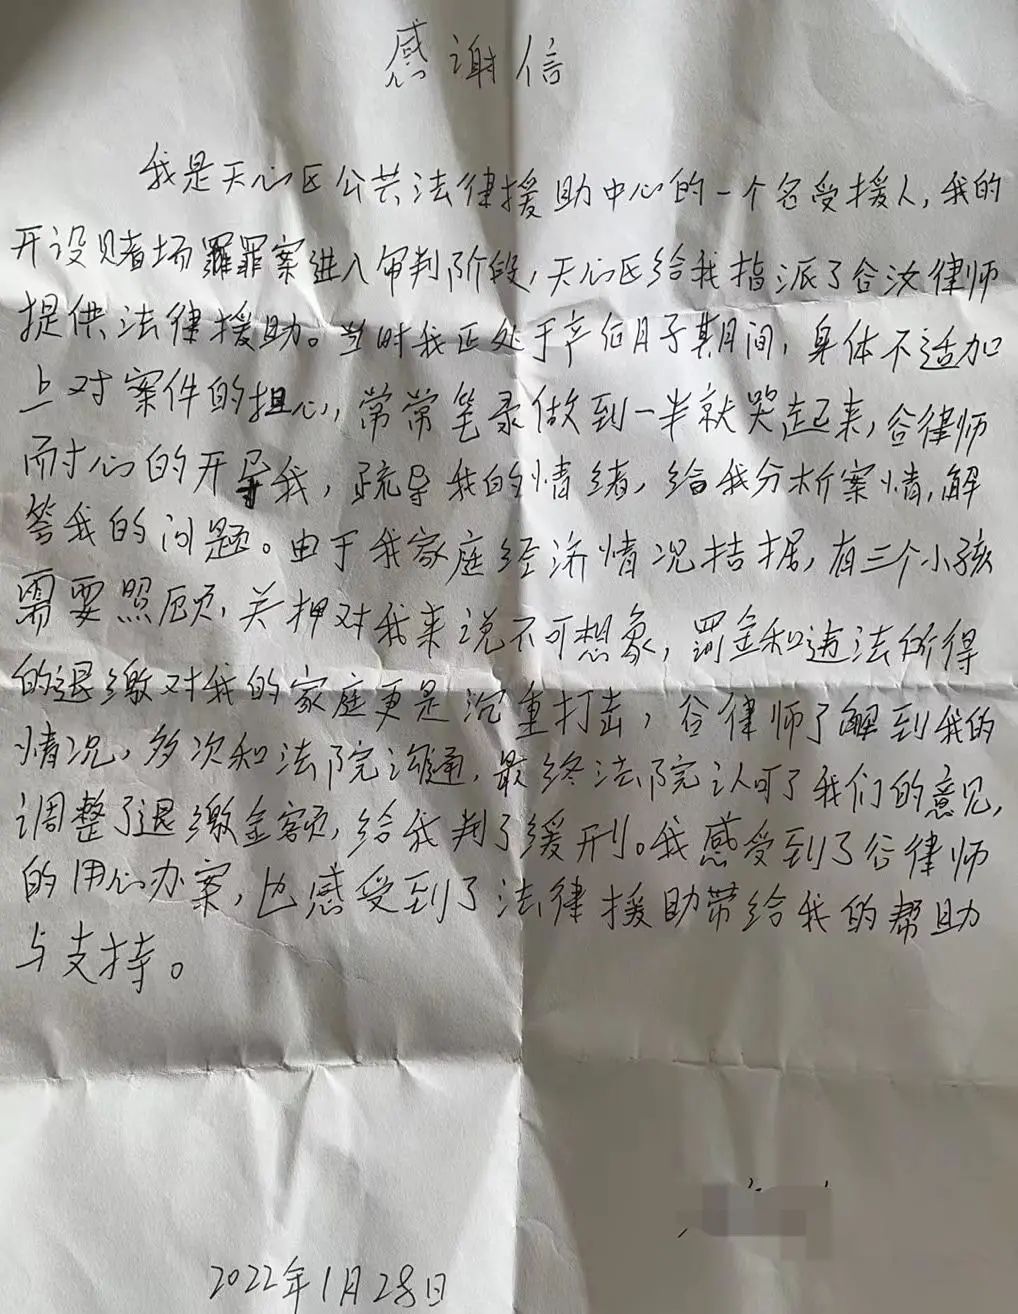 感谢信
我是天心区公共法律援助中心的一个名受援人,我的
开设赌场罪案进入审判阶段,天心区给我指派了谷汝律师
提供法律援助。当时我正处于产后月子期间,身体不适加
上对案件的担心,常常笔录做到一半就哭起来,谷律师
耐心的开导我,疏导我的情绪,给我分析案情,解
答我的问题。由于我家庭经济情况拮据,有三个小孩
需要照顾,关押对我来说不可想象,罚金和违法所得
的退缴对我的家庭更是沉重打击,谷律师了解到我的
情况,多次和法院沟通,最终法院认可了我们的意见,
调整了退缴金额,给我判了缓刑。我感受到了谷律师
的用心办案,也感受到了法律援助带给我的帮助
与支持。
2022年1月28日